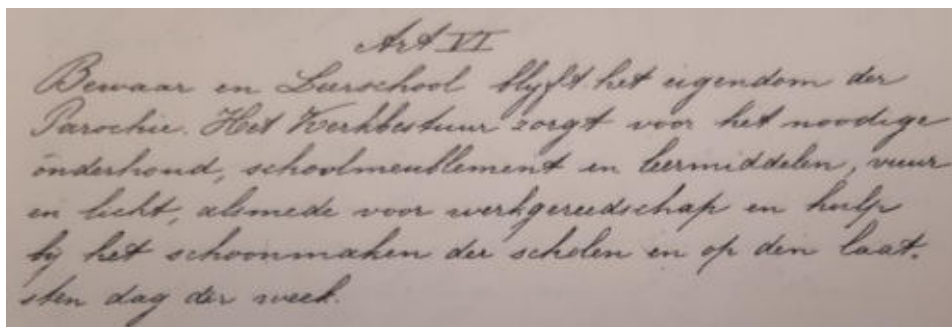 Art VI
Bewaar en Leerschool blyft het eigendom der
Parochie. Het Kerkbestuur zorgt voor het noodige
onderhoud, schoolmeublement en leermiddelen, vuur
en licht, alsmede voor werkgereedschap en hulp
by het schoonmaken der scholen en op den laat-
sten dag der week.